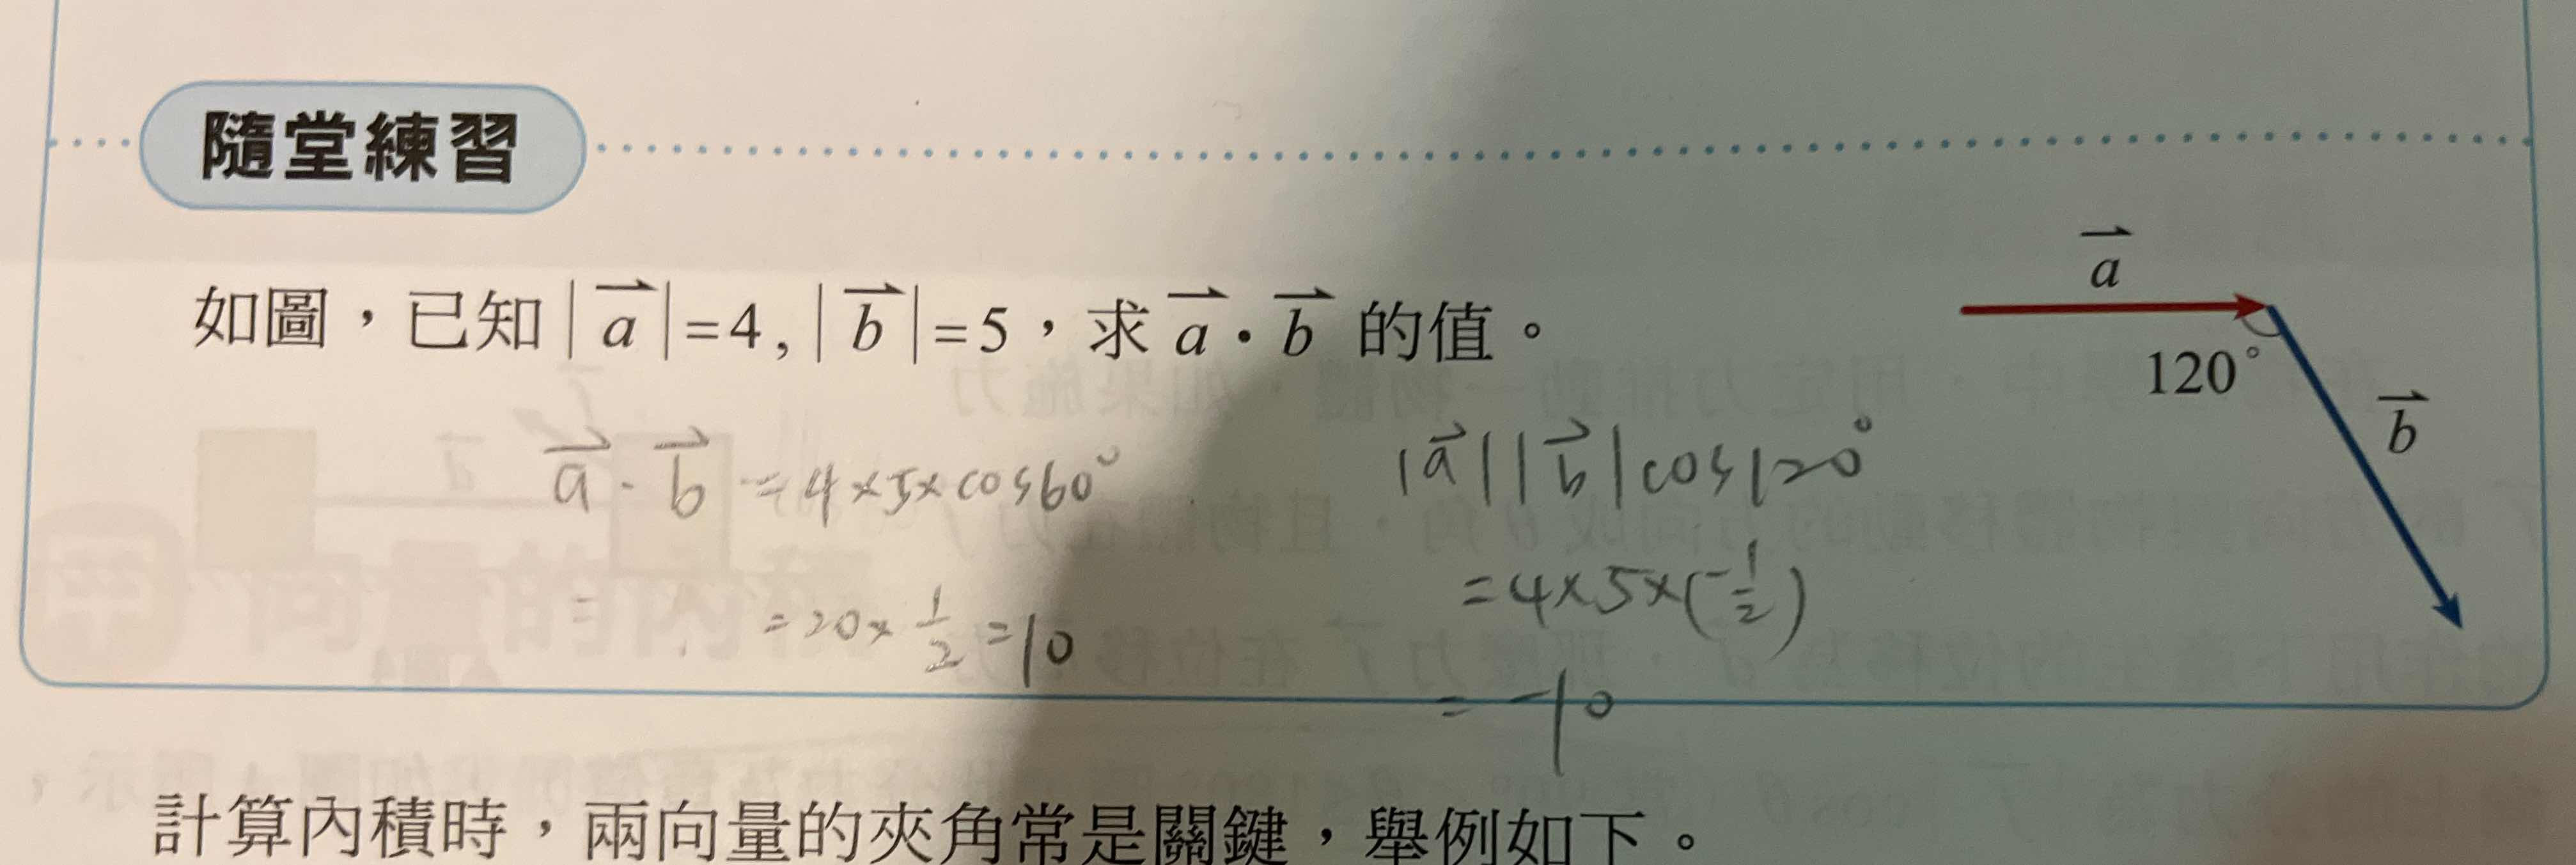 隨堂練習
如圖，已知 |\overrightarrow{a}|=4, |\overrightarrow{b}|=5，求 \overrightarrow{a}·\overrightarrow{b} 的值。
\overrightarrow{a}
120°
\overrightarrow{b}
\overrightarrow{a}·\overrightarrow{b} = 4×5×cos60°
=
= 20×\frac{1}{2} = 10
|\overrightarrow{a}||\overrightarrow{b}|cos120°
= 4×5×(-\frac{1}{2})
= -10
計算內積時，兩向量的夾角常是關鍵，舉例如下。